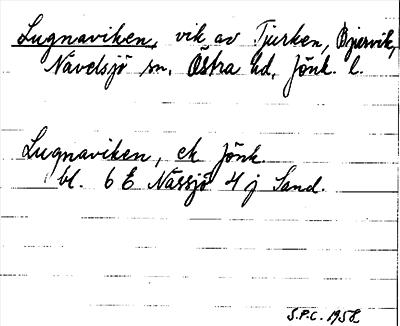 Lugnaviken, vik av Tjurken, Bjervik,
Nävelsjö sn, Östra hd, Jönk. l.
Lugnaviken, ek Jönk.
bl. 6 E Nässjö 4 j Sand.
S.P.C. 1958